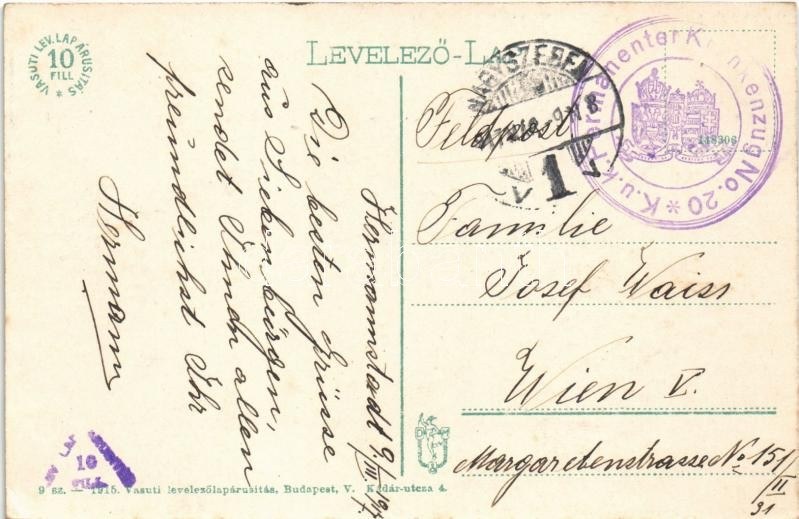 VASUTI LEV. LAP ÁRUSITÁS *
10
FILL
LEVELEZŐ-LAP
NAGYSZEBEN
K.u.k. Permanenter Krankenzug No. 20 *
148306
1
Feldpost
Familie
Josef Waiss
Wien V.
Margaretenstrasse No 151/II/31
Hermannstadt 9./III. 191
Die besten Grüsse
aus Siebenbürgen,
sendet Ihnen allen
freundlichst Ihr
Hermann
10
FILL
9 sz. — 1915. Vasuti levelezőlapárusitás, Budapest, V. Kádár-utcza 4.